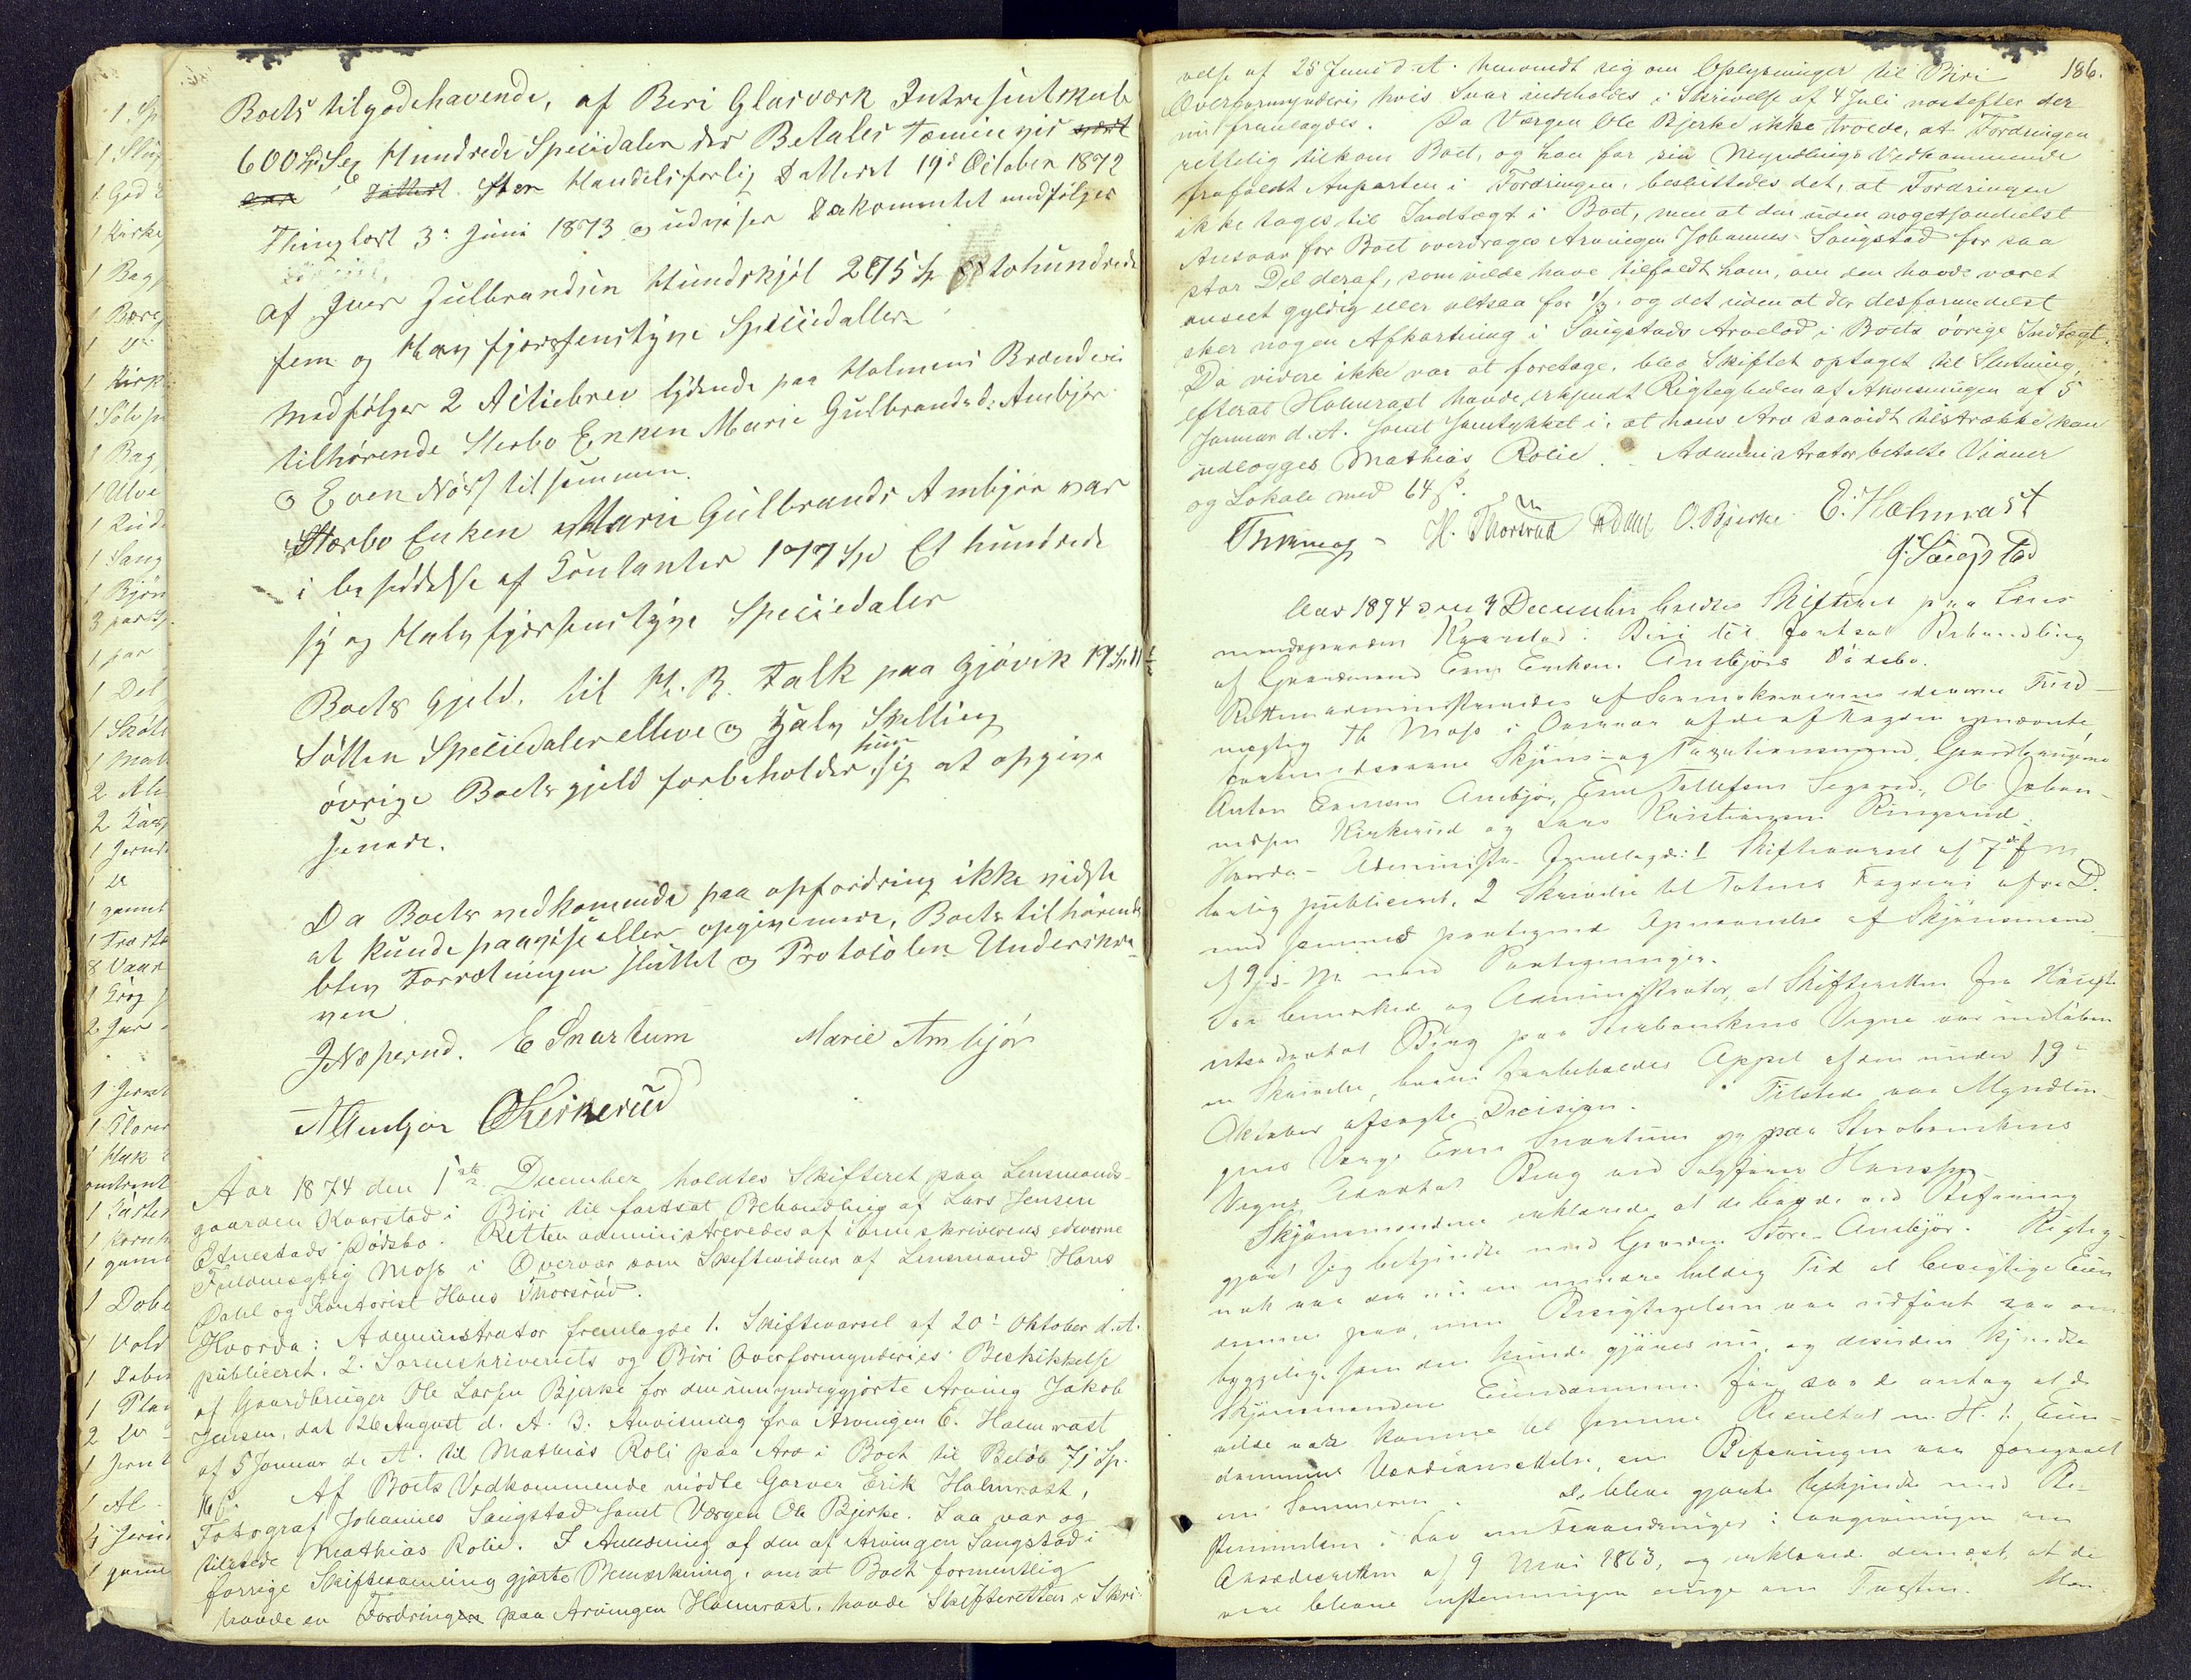 Boets tilgodehavende, af Biri Glasværk Intresentskab
600 Sp Sex Hundrede Speciedaler der Betales Tæminvis
Handelsforlig Datteret 19de October 1872
Thinglæst 3. Juni 1873 og udviser Dokomentet medfølger
af Iver Gulbrandsen Hundskjøl 275 Sp tohundrede
fem og Halvfjersenstyve Speciedaller
Medfølger 2 Actiebrev lydende paa Holmens Brænderi
tilhørende Sterbo Enken Marie Gulbrandsd: Ambjør
og Even tilsammen.
Stærbo Enken Marie Gulbrands Ambjør var
i besiddelse af Contanter 177 Sp Et hundrede
sÿ og Halvfjersenstyve Speciedaler
Boets Gjeld, til H. B. Falk paa Gjøvik 17 Sp 11 ½
Søtten Speciedaler elleve og Halv Skilling
øvrige Boets gjeld forbeholder hun sig at opgive
senere.
Da Boets vedkomende paa opfordring ikke vidste
at kunde paavise eller opgive mere, Boets tilhørende
blev Forretningen sluttet og Protocolen Underskre-
ven
E Snartum Marie Ambjør
A Ambjør O Kirkerud
Aar 1874 den 1ste December holdtes Skifteret paa Lensmands-
gaarden Kvarstad i Biri til fortsat Behandling af Lars Jensen
Ætnestads Dødsbo. Retten administreredes af Sorenskriverens edsvorne
Fuldmægtig Moss i Overvær som Skiftevidner af Lensmand Hans
Dahl og Kontorist Hans Thorsrud.
Hvorda: Administrator fremlagde 1. Skiftevarsel af 20de Oktober d. A.
publiceret. 2. Sorenskriverets og Biri Overformynderies Beskikkelse
af Gaardbruger Ole Larsen Bjerke for den umyndiggjorte Arving Jakob
Jensen, dat 26 August d. A. 3. Anvisning fra Arvingen E. Holmrast
af 5 Januar d. A. til Mathias Roli paa Arv i Boet til Beløb 71 Sp.
16 ß. Af Boets Vedkommende mødte Garver Erik Holmrast,
Fotograf Johannes Saugstad samt Værgen Ole Bjerke. Saa var og
tilstede Mathias Rolie. I Anledning af den af Arvingen Saugstad i
forrige Skiftesamling gjorte Bemærkning, om at Boet formentlig
havde en Fordring paa Arvingen Holmrast, havde Skifteretten i Skri-
186.
velse af 25 Juni d. A. henvendt sig om Oplysninger til Biri
Overformynderi, hvis Svar indeholdes i Skrivelse af 4 Juli næstefter der
nu fremlagdes. Da Værgen Ole Bjerke ikke troede, at Fordringen
rettelig tilkom Boet, og han for sin Myndlings Vedkommende
frafaldt Anparten i Fordringen, besluttedes det, at Fordringen
ikke tages til Indtægt i Boet, men at den uden nogetsomhelst
Ansvar for Boet overdrages Arvingen Johannes Saugstad for saa
stor Del deraf, som vilde have tilfaldt ham, om den havde været
anseet gyldig eller altsaa for ⅓, og det uden at der desformedelst
sker nogen Afkortning i Saugstads Arvelod i Boets øvrige Indtægt.
Da videre ikke var at foretage, blev Skiftet optaget til Slutning,
efterat Holmrast havde erkjendt Rigtigheden af Anvisningen af 5
Januar d. A. samt samtykket i, at hans Arv saavidt tilstrække kan
udlægges Mathias Rolie. Administrator betalte Vidner
og Lokale med 64 ß.
H. Thorsrud H Dahl O. Bjerke E. Holmrast
J. Saugstad
Aar 1874 den 4 December holdtes Skifteret paa Lens
mandsgaarden Kvarstad i Biri til fortsat Behandling
af Gaardmand Even Eriksen Ambjørs Dødsbo.
Retten administreredes af Sorenskriverens edsvorne Fuld-
mægtig Th Moss i Overvær af de af Fogden opnævnte
edsvorne Skjøns- og Taxationsmænd, Gaardbrugerne
Anton Evensen Ambjør, Even Tollefsen Segaard, Ole Johan-
nessen Kirkerud og Lars Kristiansen Ringerud.
Hvorda Administr. fremlagde: 1 Skiftevarsel af 7de f. M
lovlig publiceret, 2 Skrivelse til Totens Fogderi af s. D.
med sammes paategnede Opnævnelse af Skjønsmænd
af 9 s. M. med Paategninger.
Saa bemærkede og Administrator, at Skifteretten fra Høiest-
eretsadvokat Bing paa Sterboenkens Vegne var indløben
en Skrivelse, hvori forbeholdes Appel af den under 19de
Oktober afsagte Decision. Tilstede var Myndlin-
gens Værge Even Snartum og paa Sterboenkens
Vegne Advokat Bing ved Sagfører Hansson.
Skjønsmændene erklærede at de havde ved Befaring
gjort sig bekjendte med Gaarden Store-Ambjør. Rigtig-
nok var der nu en mindre heldig Tid at besigtige Eien
domme paa, men Besigtigelsen var udført saa om
hyggelig som den kunde gjøres nu, og desuden kjendte
Skjønsmændene Eiendommen før, saa de antog at de
vilde nok komme til samme Resultat m. H. t. Eien-
dommens Værdiansættelse, om Befaringen var foregaaet
om Sommeren. De bleve gjorte bekjendte med Be-
stemmelsen i Lov om Forandringer i Lovgivningen om
Aasædesretten af 9 Mai 1863, og erklærede dernæst, at de
vare blevne enstemmigen enige om Taxten. Man